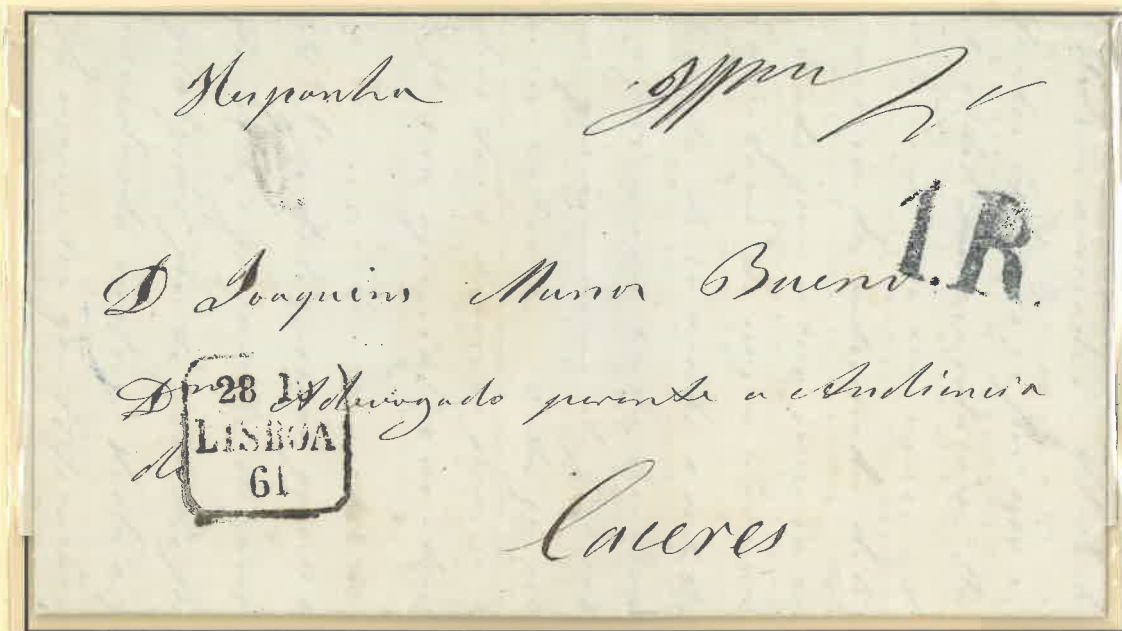 Hespanha
1R
D Joaquim Munos Bueno.
Dmo Advogado perante a Audiencia
de
28 1
LISBOA
61
Caceres